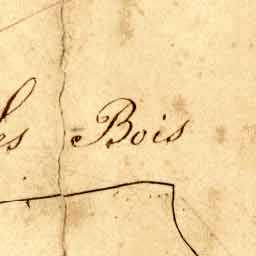 es Bois